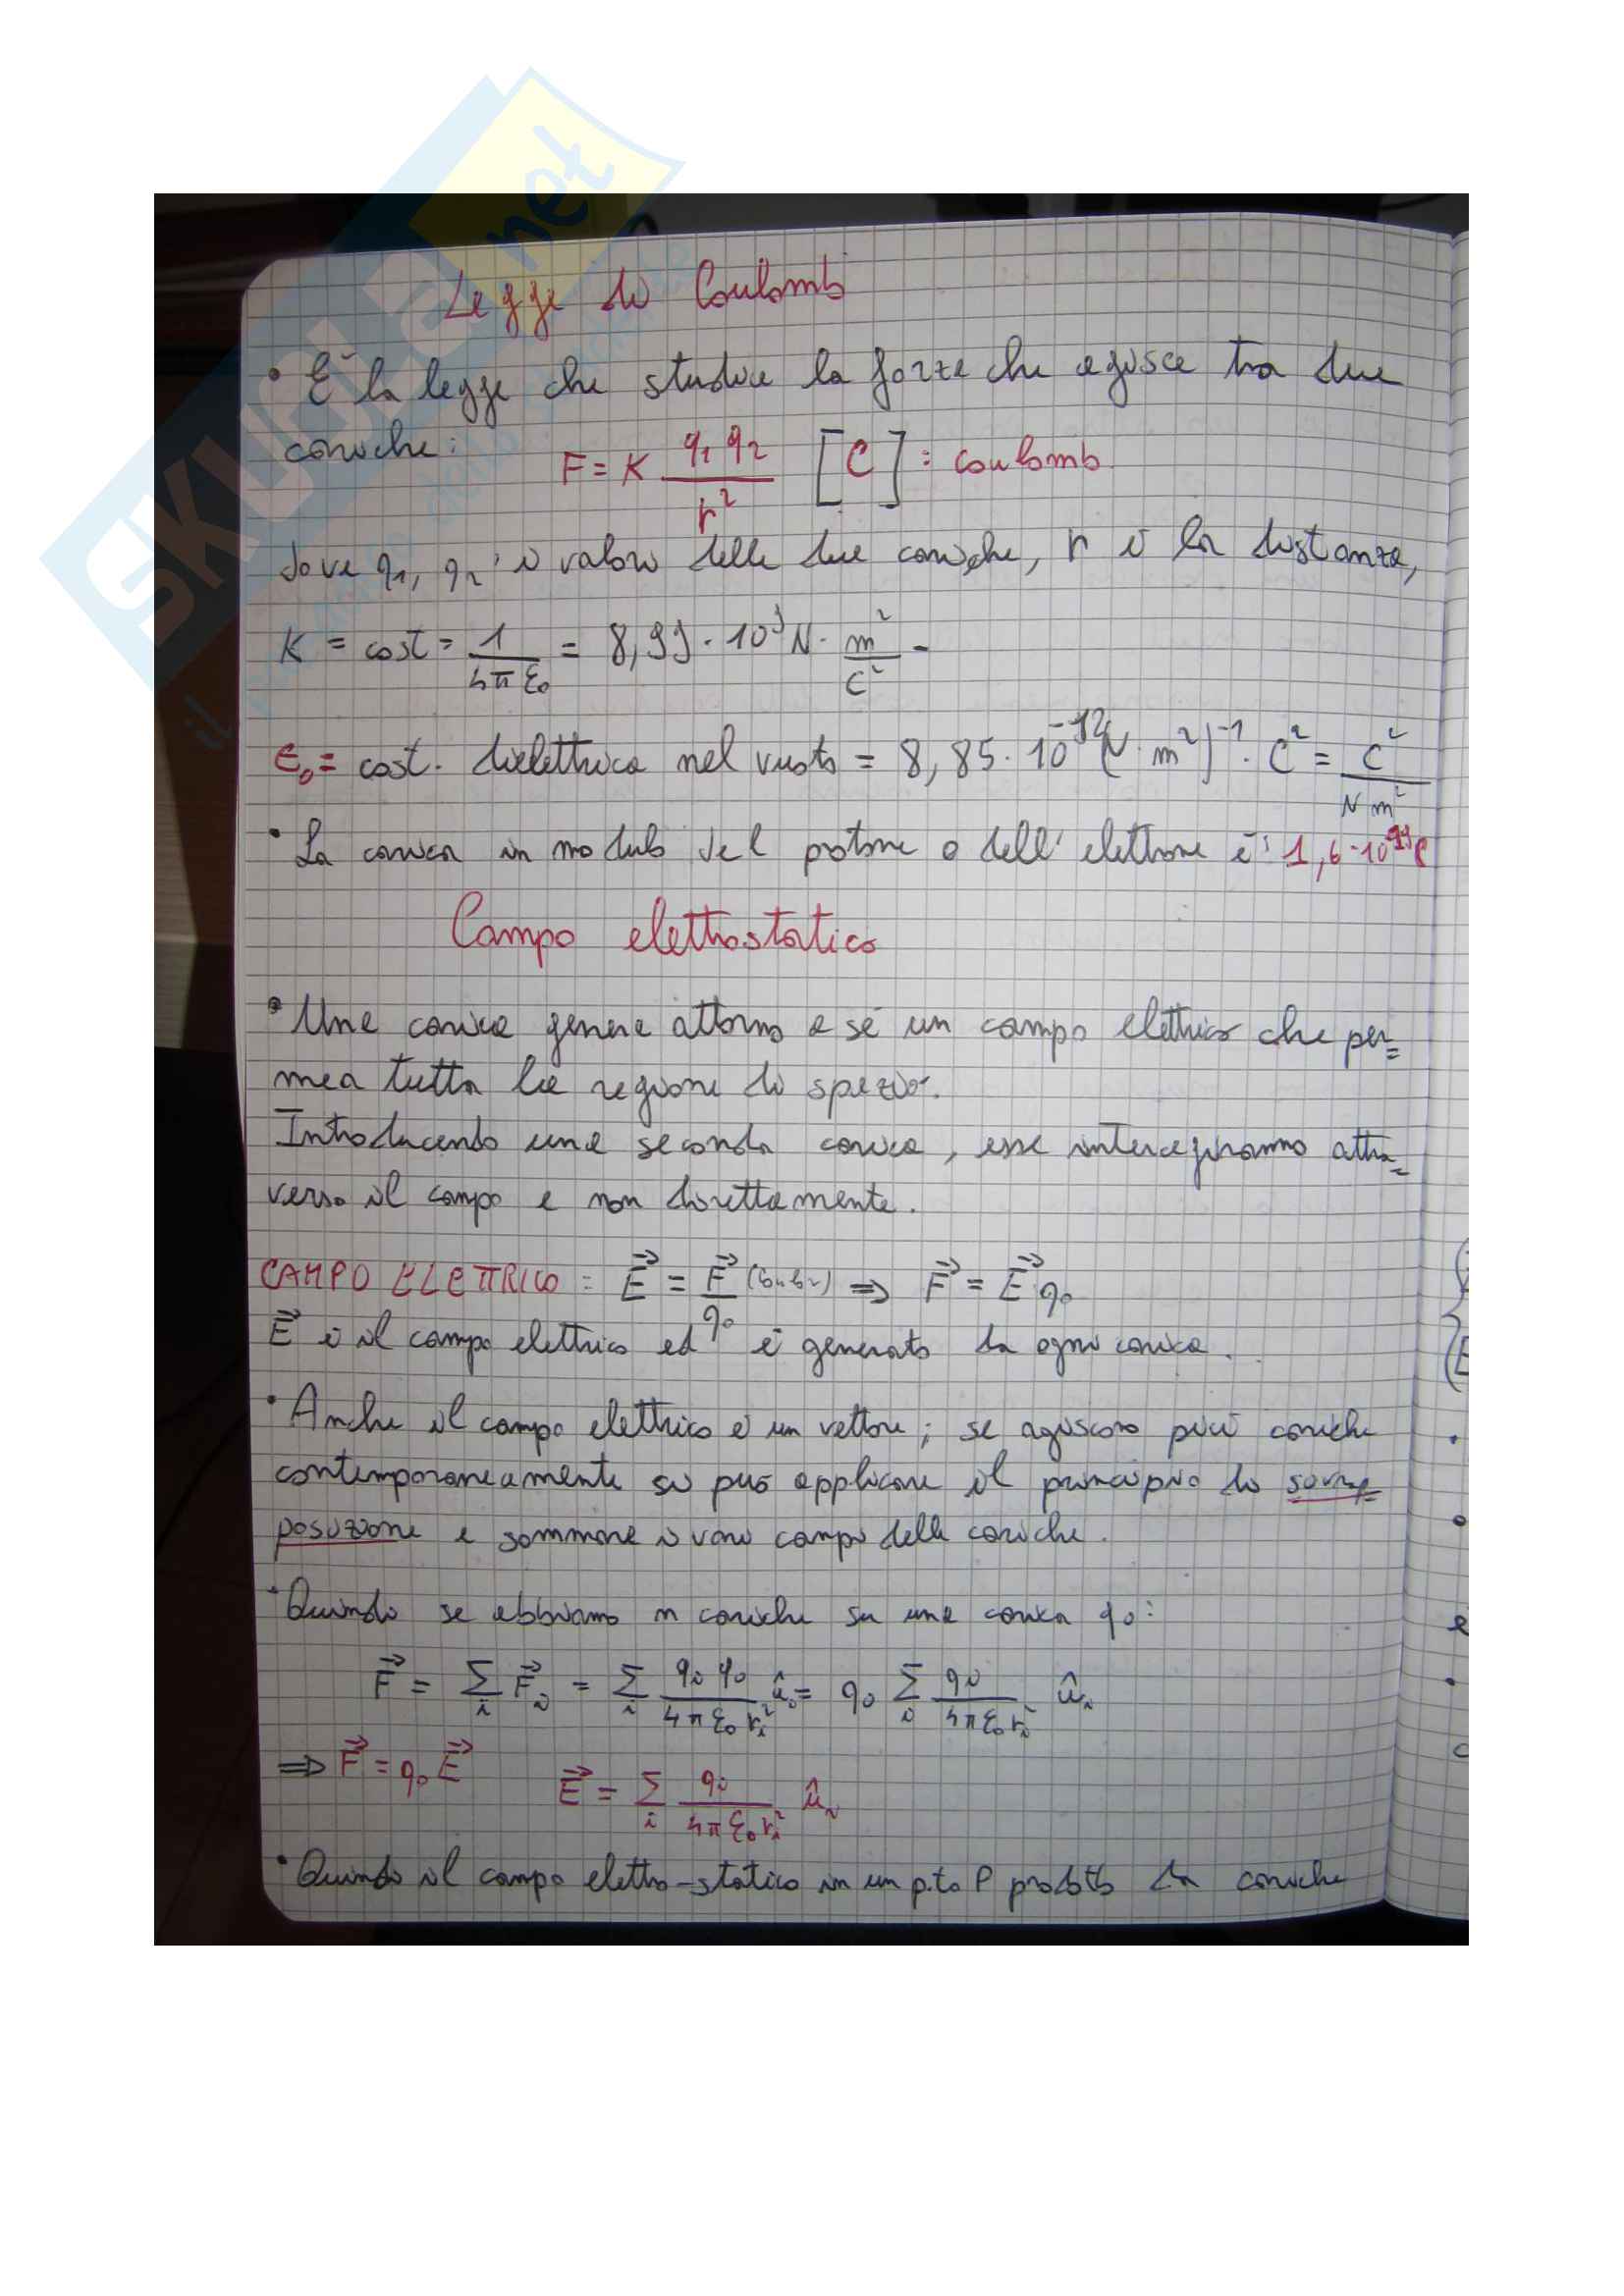 SKUOLA.net
Legge di Coulomb
• È la legge che studia la forza che agisce tra due
cariche: F = K q₁ q₂ / r² [C] = coulomb.
dove q₁, q₂ i valori delle due cariche, r è la distanza,
K = cost = 1 / 4π ε₀ = 8,99 · 10⁹ N · m² / C²
ε₀ = cost. dielettrica nel vuoto = 8,85 · 10⁻¹² (N · m²)⁻¹ · C² = C² / N m²
• La carica in modulo del protone o dell' elettrone è: 1,6 · 10⁻¹⁹ C
Campo elettrostatico
• Una carica genera attorno a sé un campo elettrico che per=
mea tutta la regione di spazio.
Introducendo una seconda carica, esse interagiranno attra=
verso il campo e non direttamente.
CAMPO ELETTRICO = E⃗ = F⃗ / q₀ ⇒ F⃗ = E⃗ q₀
E⃗ è il campo elettrico ed è generato da ogni carica.
• Anche il campo elettrico è un vettore; se agiscono più cariche
contemporaneamente si può applicare il principio di sovrap=
posizione e sommare i vari campi delle cariche.
• Quindi se abbiamo n cariche su una carica q₀:
F⃗ = Σᵢ F⃗ᵢ = Σᵢ qᵢ q₀ / 4π ε₀ rᵢ² ûᵢ = q₀ Σᵢ qᵢ / 4π ε₀ rᵢ² ûᵢ
⇒ F⃗ = q₀ E⃗ E⃗ = Σᵢ qᵢ / 4π ε₀ rᵢ² ûᵢ
• Quindi il campo elettro-statico in un p.to P prodotto da cariche